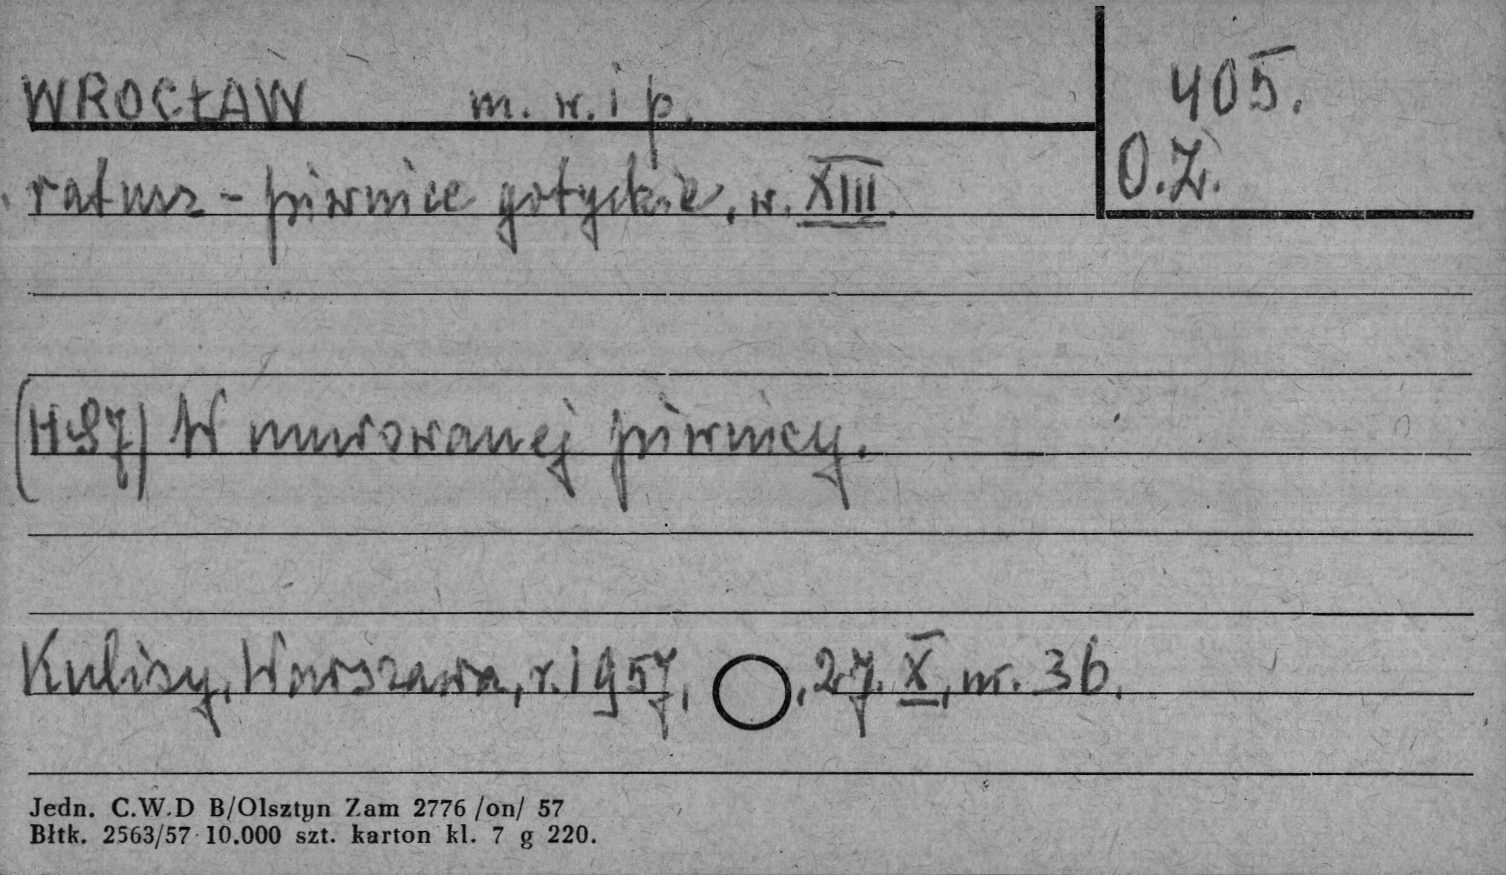 WROCŁAW m. w. i p.
405.
O.Z.
ratusz - piwnice gotyckie, w. XIII.
(HS7) W murowanej piwnicy.
Kulisy, Warszawa, r. 1957, 27. X, nr. 36.
Jedn. C.W.D B/Olsztyn Zam 2776 /on/ 57
Błtk. 2563/57 10.000 szt. karton kl. 7 g 220.